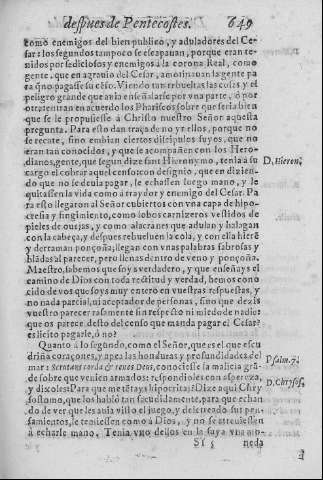 despues de Pentecostes. 649
como enemigos del bien publico, y aduladores del Ce-
sar: los segundos tampoco se escapauan, porque eran te-
nidos por sediciosos y enemigos à la corona Real, como
gente, que en agrauio del Cesar, amotinauan la gente pa
ra q̃ no pagasse su cẽso. Viendo tan rebueltas las cosas y el
peligro grande que auia en señalarse por vna parte, ô por
otra entran en acuerdo los Phariseos sobre que seria bien
que se le propusiesse à Christo nuestro Señor aquesta
pregunta. Para esto dan traça de no yr ellos, porque no
se recate, sino embian ciertos discipulos suyos, que no
eran tan conocidos, y que se acompañen con los Hero-
dianos, gente, que segun dize sant Hieronymo, tenia a su
D. Hieron.
cargo el cobrar aquel censo: con designio, que en dizien-
do que no se deuia pagar, le echassen luego mano, y le
quitassen la vida como à traydor y enemigo del Cesar. Pa
ra esto llegaron al Señor cubiertos con vna capa de hipo-
cresia y fingimiento, como lobos carnizeros vestidos de
pieles de ouejas, y como alacranes que adulan y halagan
con la cabeça, y despues rebueluen la cola, y con ella hierẽ
y derraman ponçoña, llegan con vnas palabras sabrosas y
blãdas al parecer, pero llenas dentro de veno y ponçoña.
Maestro, sabemos que soys verdadero, y que enseñays el
camino de Dios con toda rectitud y verdad, hemos cono
cido de vos que soys muy entero en vuestras respuestas, y
no nada parcial, ni aceptador de personas, sino que dezis
vuestro parecer rasamente sin respecto ni miedo de nadie:
que os parece desto del censo que manda pagar el Cesar?
es licito pagarle, ò no?
Quanto à lo segundo, como el Señor, que es el que escu
driña coraçones, y apea las honduras y profundidades del
mar: Scrutans corda & renes Deus, conociesse la malicia grã-
Psalm. 7.
de sobre que venian armados: respondioles con aspereza,
y dixoles: Para que me tẽtays hipocritas? Dize aqui Chry
D. Chrysos.
sostomo, que los habló tan sacudidamente, para que echan
do de ver que les auia visto el juego, y deletreado sus pen-
samientos, le temiessen como à Dios, y no se atreuiessen
à echarle mano. Tenia vno dellos en la suya vna mo-
Ss 5 neda